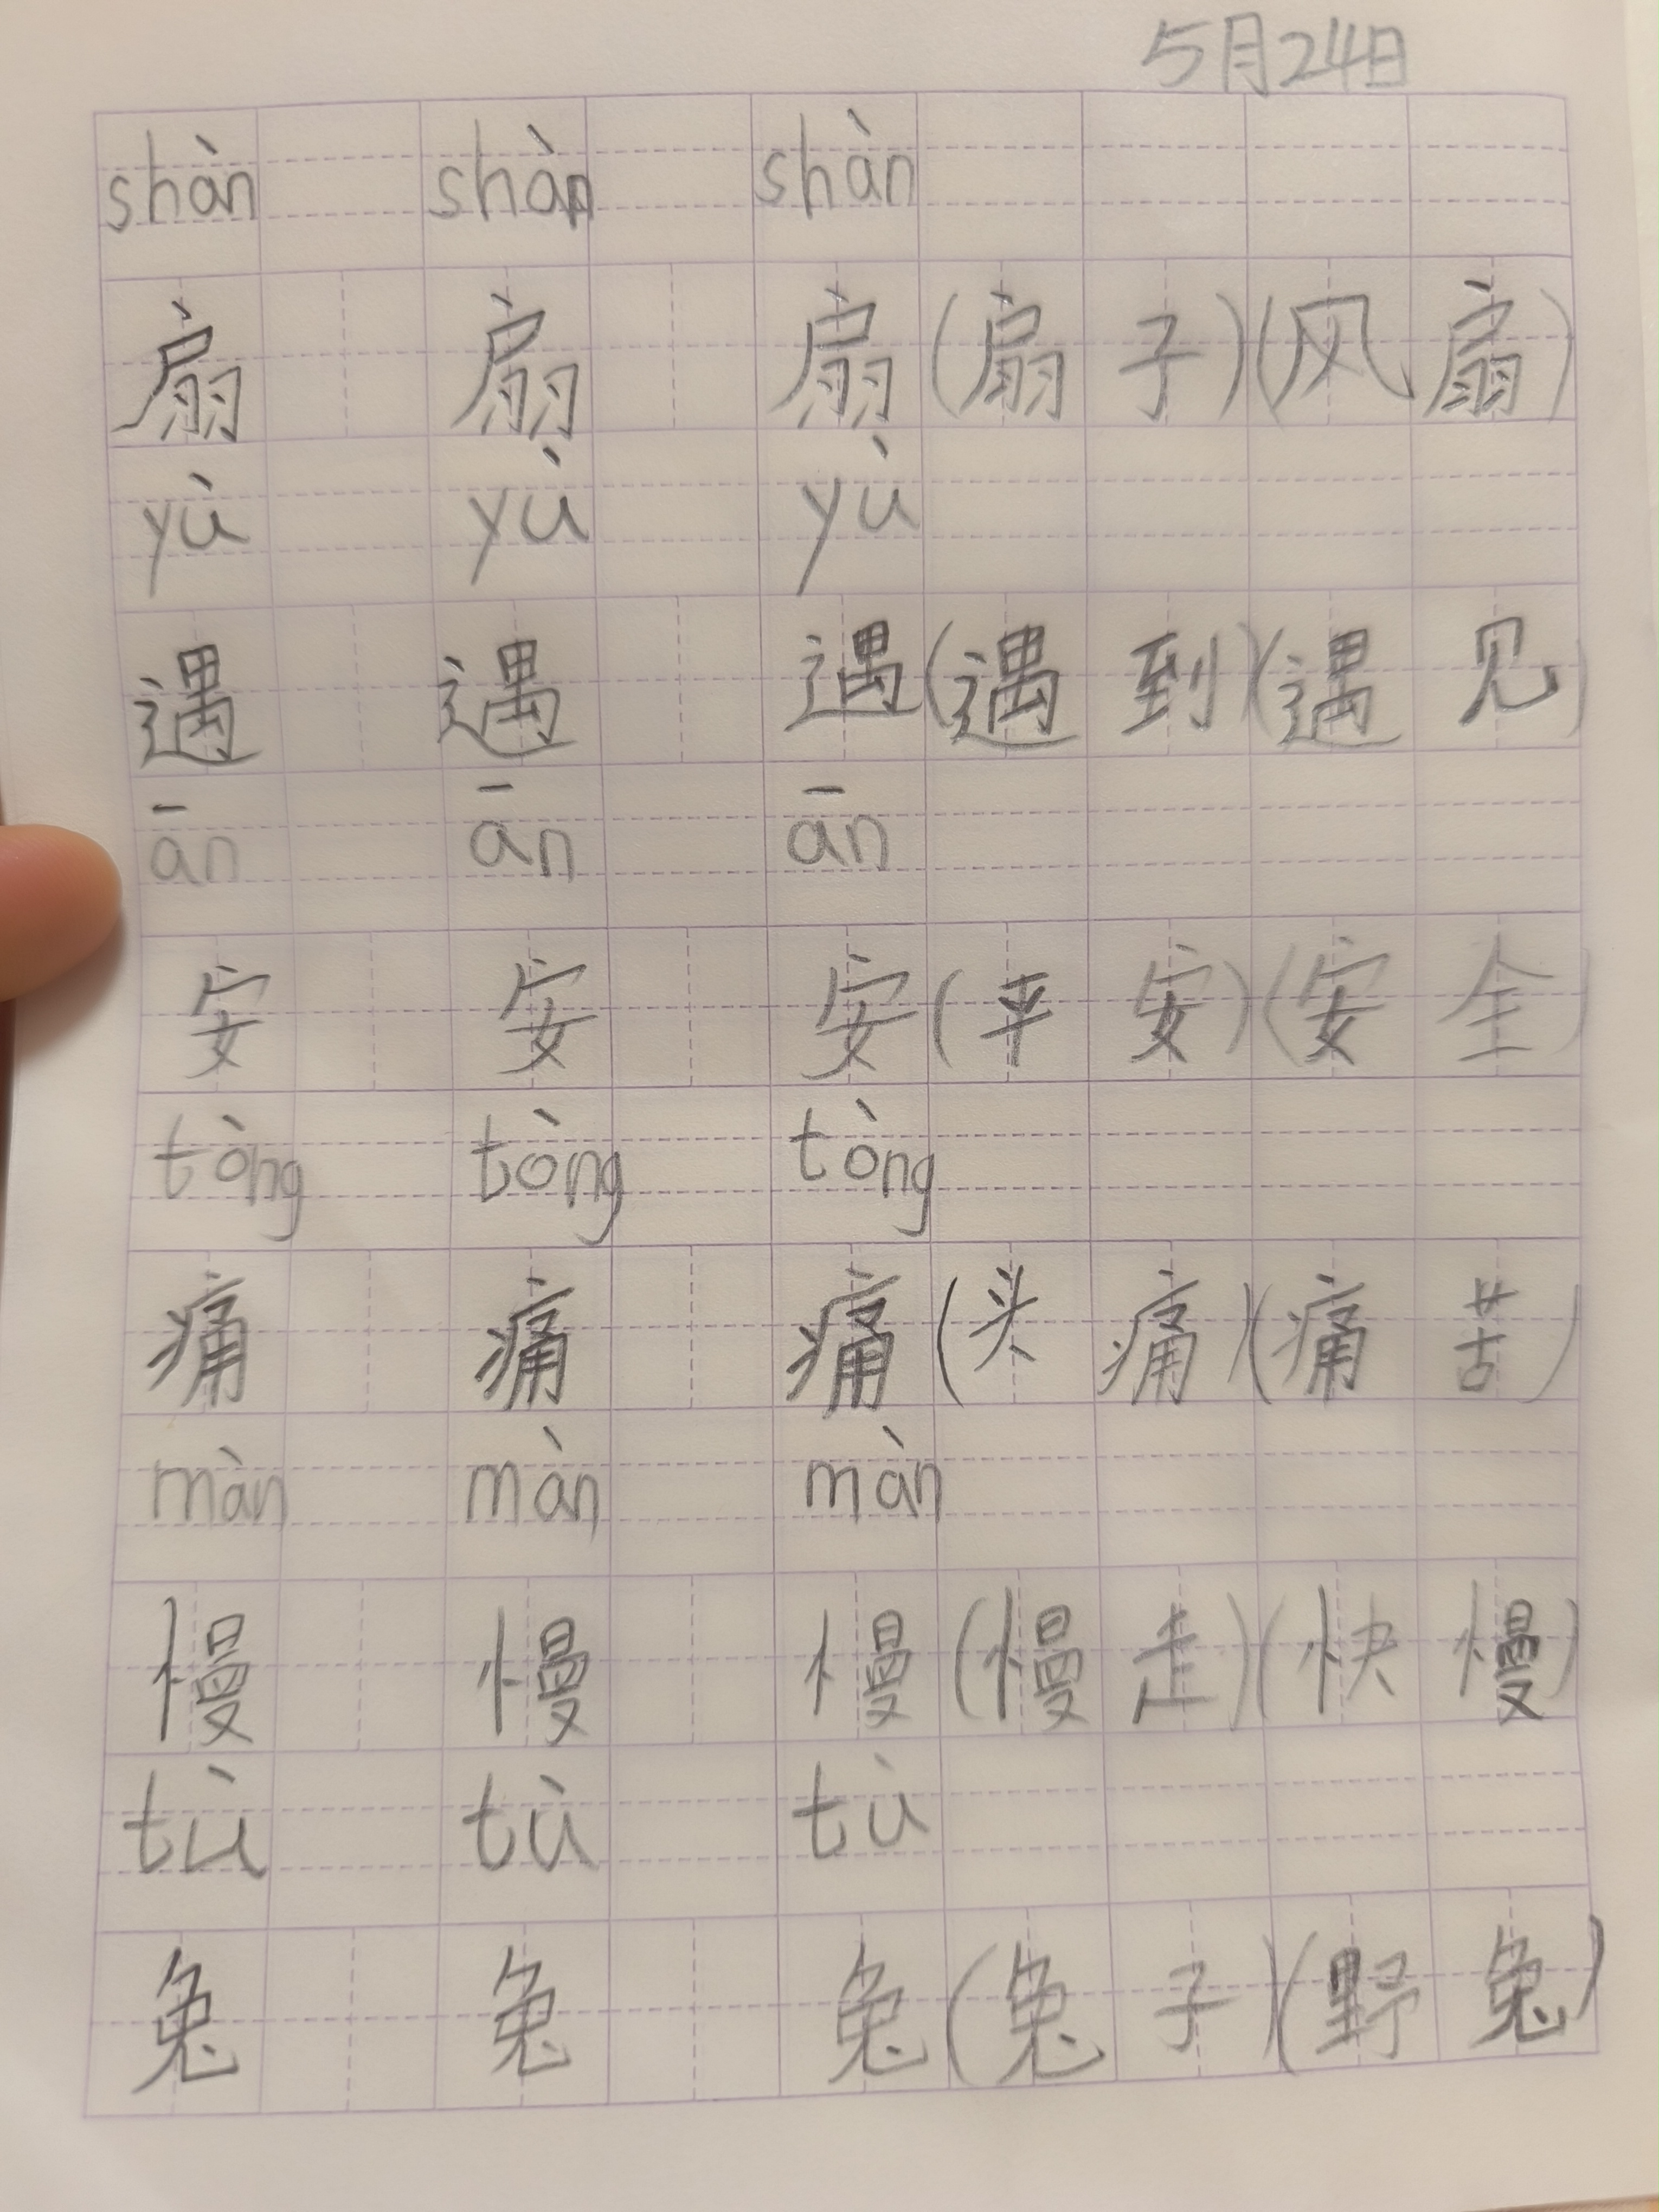 5月24日
shàn shàn shàn
扇 扇 扇(扇子)(风扇)
yù yù yù
遇 遇 遇(遇到)(遇见)
ān ān ān
安 安 安(平安)(安全)
tòng tòng tòng
痛 痛 痛(头痛)(痛苦)
màn màn màn
慢 慢 慢(慢走)(快慢)
tù tù tù
兔 兔 兔(兔子)(野兔)